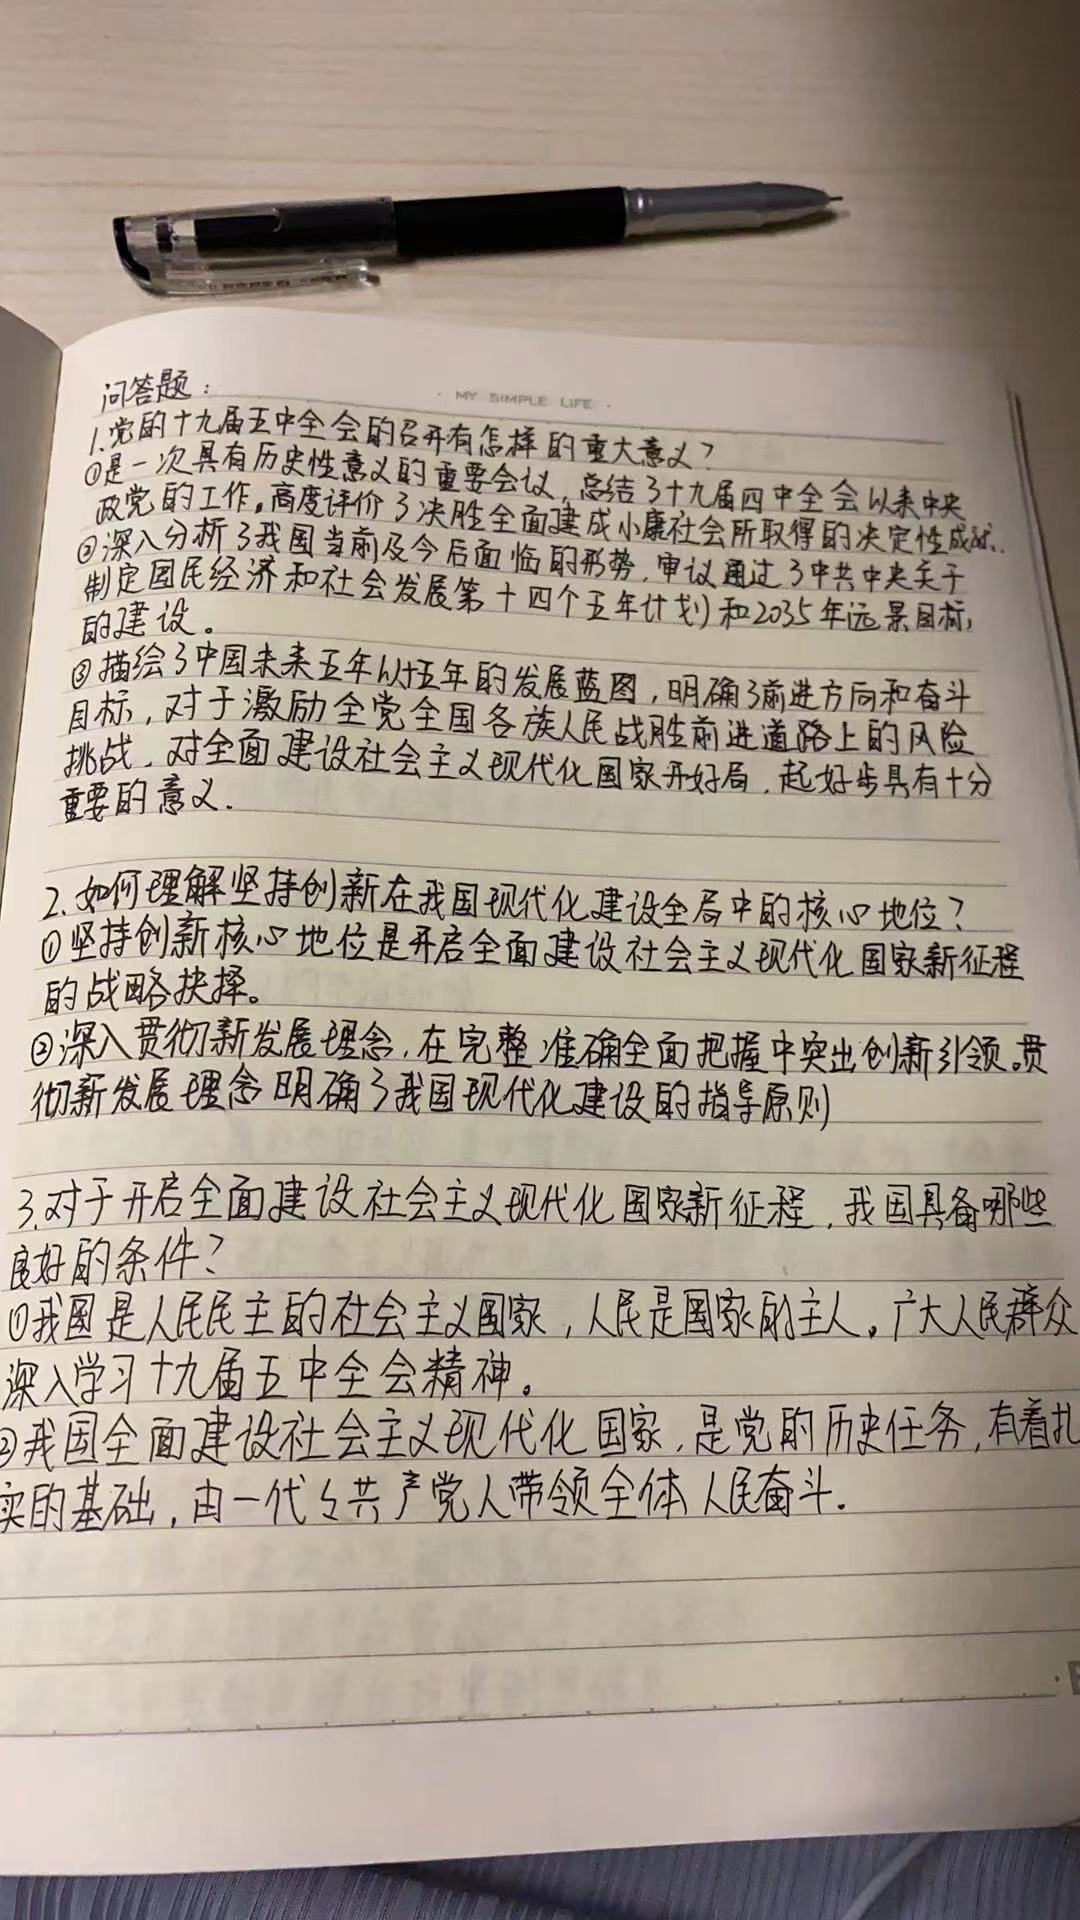 MY SIMPLE LIFE
问答题：
1.党的十九届五中全会的召开有怎样的重大意义？
①是一次具有历史性意义的重要会议，总结了十九届四中全会以来中央
政党的工作。高度评价了决胜全面建成小康社会所取得的决定性成就.
②深入分析了我国当前及今后面临的形势，审议通过了中共中央关于
制定国民经济和社会发展第十四个五年计划和2035年远景目标,
的建设。
③描绘了中国未来五年以十五年的发展蓝图，明确了前进方向和奋斗
目标，对于激励全党全国各族人民战胜前进道路上的风险
挑战，对全面建设社会主义现代化国家开好局，起好步具有十分
重要的意义.
2.如何理解坚持创新在我国现代化建设全局中的核心地位？
①坚持创新核心地位是开启全面建设社会主义现代化国家新征程
的战略抉择。
②深入贯彻新发展理念，在完整准确全面把握中突出创新引领。贯
彻新发展理念明确了我国现代化建设的指导原则
3.对于开启全面建设社会主义现代化国家新征程，我国具备哪些
良好的条件？
①我国是人民民主的社会主义国家，人民是国家的主人。广大人民群众
深入学习十九届五中全会精神。
②我国全面建设社会主义现代化国家，是党的历史任务，有着扎
实的基础，由一代々共产党人带领全体人民奋斗.